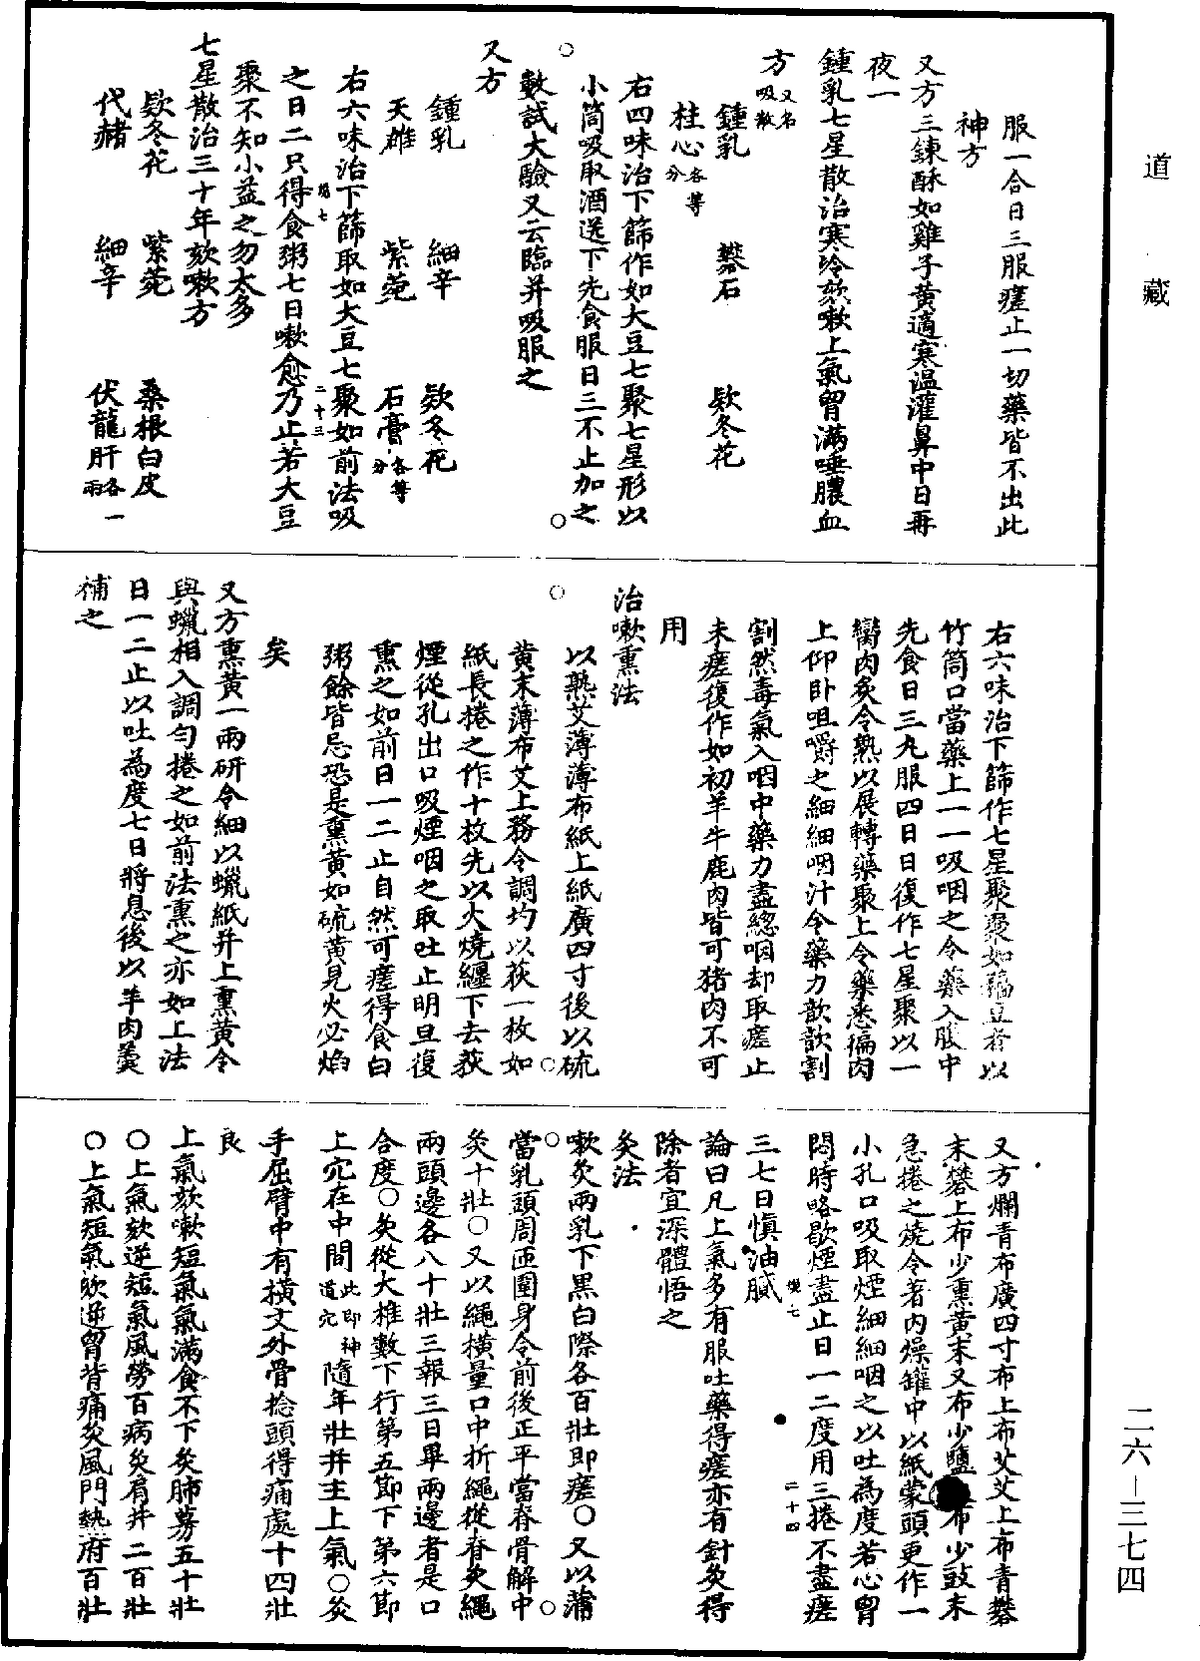 道藏
服一合日三服瘥止一切藥皆不出此
神方
又方三鍊酥如雞子黃適寒温灌鼻中日再
夜一
鍾乳七星散治寒冷欬嗽上氣胷滿唾膿血
方又名吸散
鍾乳 礬石 欵冬花
桂心各等分
右四味治下篩作如大豆七聚七星形以
小筒吸取酒送下先食服日三不止加之
數試大驗又云臨井吸服之
又方
鍾乳 細辛 欵冬花
天雄 紫菀 石膏各等分
右六味治下篩取如大豆七聚如前法吸
之日二只得食粥七日嗽愈乃止若大豆
聚不知小益之勿太多
七星散治三十年欬嗽方
欵冬花 紫菀 桑根白皮
代赭 細辛 伏龍肝各一兩
右六味治下篩作七星聚聚如藊豆者以
竹筒口當藥上一一吸咽之令藥入腹中
先食日三丸服四日日復作七星聚以一
臠肉炙令熟以展轉藥聚上令藥悉徧肉
上仰卧咀嚼之細細咽汁令藥力歆歆割
割然毒氣入咽中藥力盡總咽却取瘥止
未瘥復作如初羊牛鹿肉皆可猪肉不可
用
治嗽熏法
以熟艾薄薄布紙上紙廣四寸後以硫
黄末薄布艾上務令調均以荻一枚如
紙長捲之作十枚先以火燒纏下去荻
煙從孔出口吸煙咽之取吐止明旦復
熏之如前日一二止自然可瘥得食白
粥餘皆忌恐是熏黄如硫黄見火必焰
矣
又方熏黄一兩研令細以蠟紙并上熏黄令
與蠟相入調匀捲之如前法熏之亦如上法
日一二止以吐為度七日將息後以羊肉羹
補之
又方爛青布廣四寸布上布艾艾上布青礬
末礬上布少熏黄末又布少鹽布少豉末
急捲之燒令著内燥罐中以紙蒙頭更作一
小孔口吸取煙細細咽之以吐為度若心胷
悶時略歇煙盡止日一二度用三捲不盡瘥
三七日慎油膩
論曰凡上氣多有服吐藥得瘥亦有針灸得
除者宜深體悟之
灸法
嗽灸兩乳下黑白際各百壯即瘥○又以蒲
當乳頭周匝圍身令前後正平當脊骨解中
灸十壯○又以繩横量口中折繩從脊灸繩
兩頭邊各八十壯三報三日畢兩邊者是口
合度○灸從大椎數下行第五節下第六節
上穴在中間此即神道穴隨年壯并主上氣○灸
手屈臂中有横文外骨捻頭得痛處十四壯
良
上氣欬嗽短氣氣滿食不下灸肺募五十壯
○上氣欬逆短氣風勞百病灸肩井二百壯
○上氣短氣欬逆胷背痛灸風門熱府百壯
二六—三七四